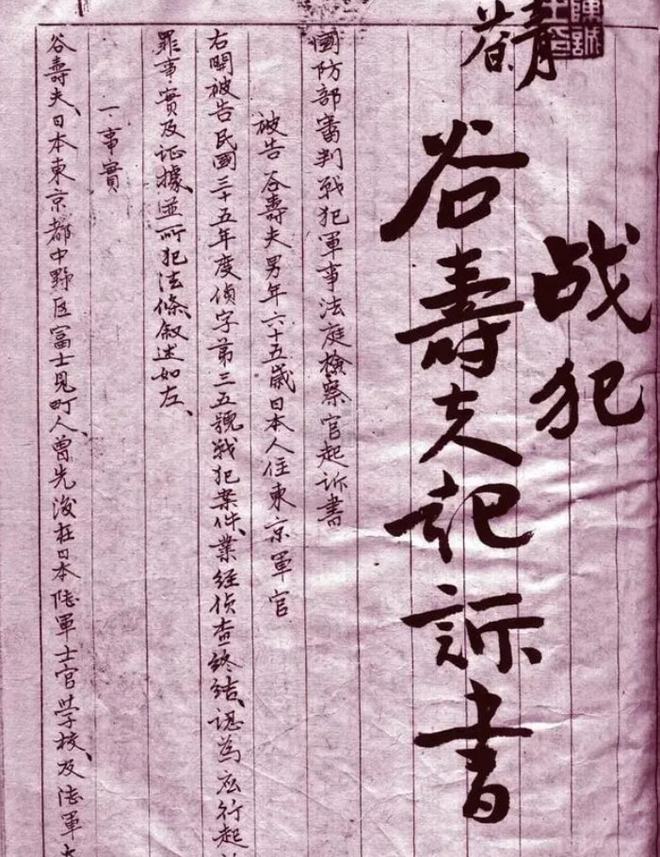 战犯
谷壽夫起訴書
國防部審判戰犯軍事法庭檢察官起訴書
被告 谷壽夫 男年六十五歲日本人住東京軍官
右開被告民國三十五年度偵字第三五號戰犯案件、業經偵查終結、認為应行起
罪事實及証據並所犯法條叙述如左、
一事實
谷壽夫、日本東京都中野区富士見町人、曾先後在日本陸軍士官学校、及陸軍大